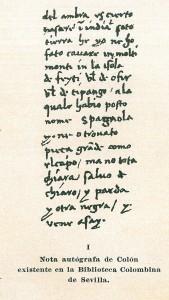 del ambra es cierto
nasçere i india soto
tierra he yo ne ho
fato cavare in molti
monte in la isola
de feyti vel de ofir
vel de cipango, a la
quale habio posto
nome spagnola
y ne o trovato
pieça grāde como
el capo, ma no tota
chiara, salvo de
chiaro y parda
y otra negra, y
vene asay.
I
Nota autógrafa de Colón
existente en la Biblioteca Colombina
de Sevilla.